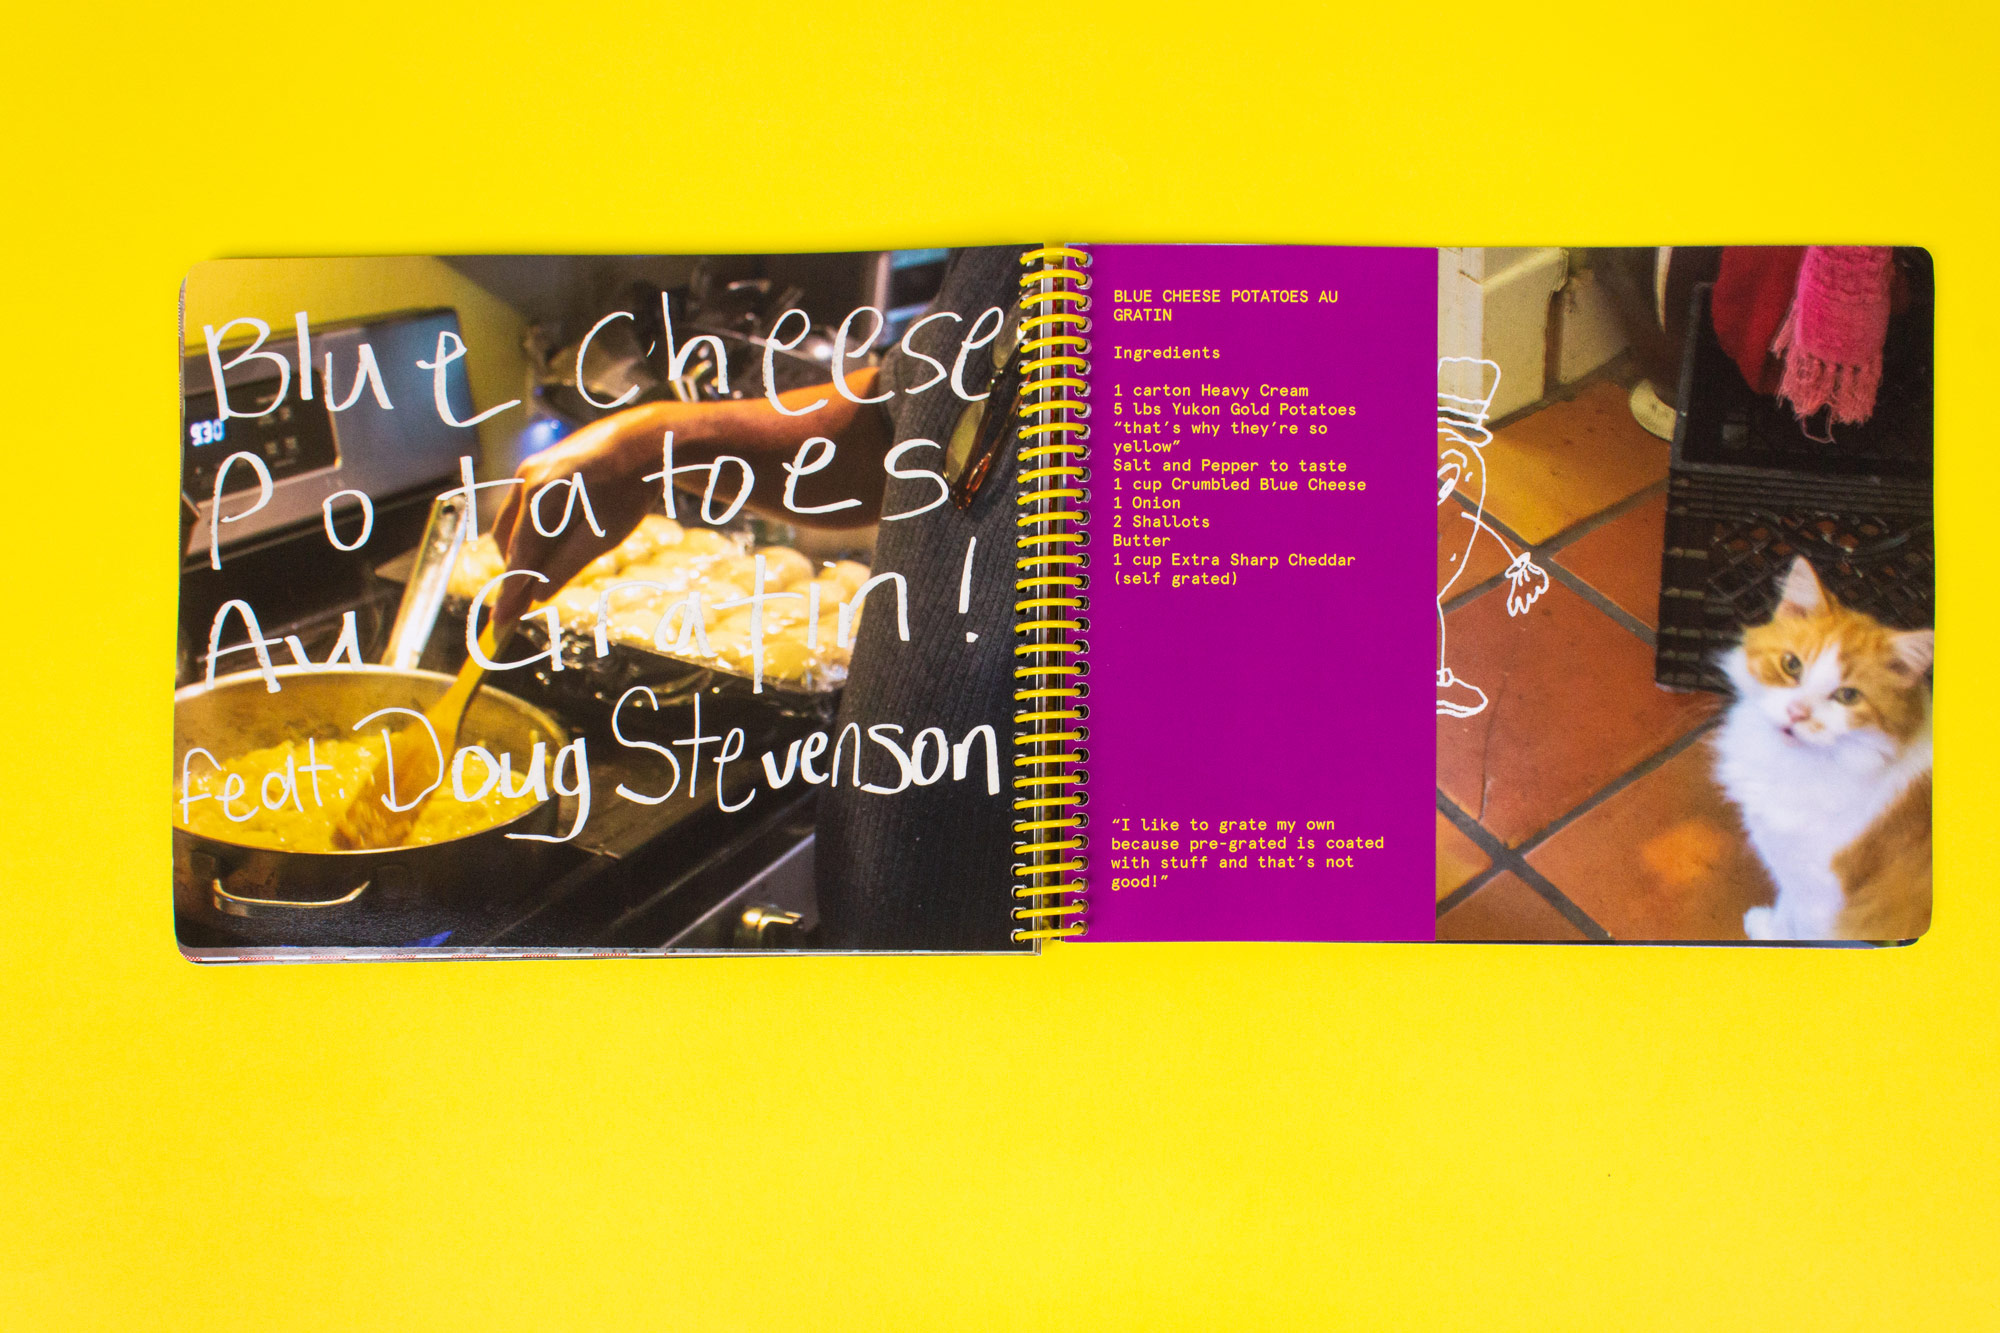 Blue Cheese
Potatoes
Au Gratin!
feat. Doug Stevenson
BLUE CHEESE POTATOES AU
GRATIN
Ingredients
1 carton Heavy Cream
5 lbs Yukon Gold Potatoes
“that’s why they’re so
yellow”
Salt and Pepper to taste
1 cup Crumbled Blue Cheese
1 Onion
2 Shallots
Butter
1 cup Extra Sharp Cheddar
(self grated)
“I like to grate my own
because pre-grated is coated
with stuff and that’s not
good!”